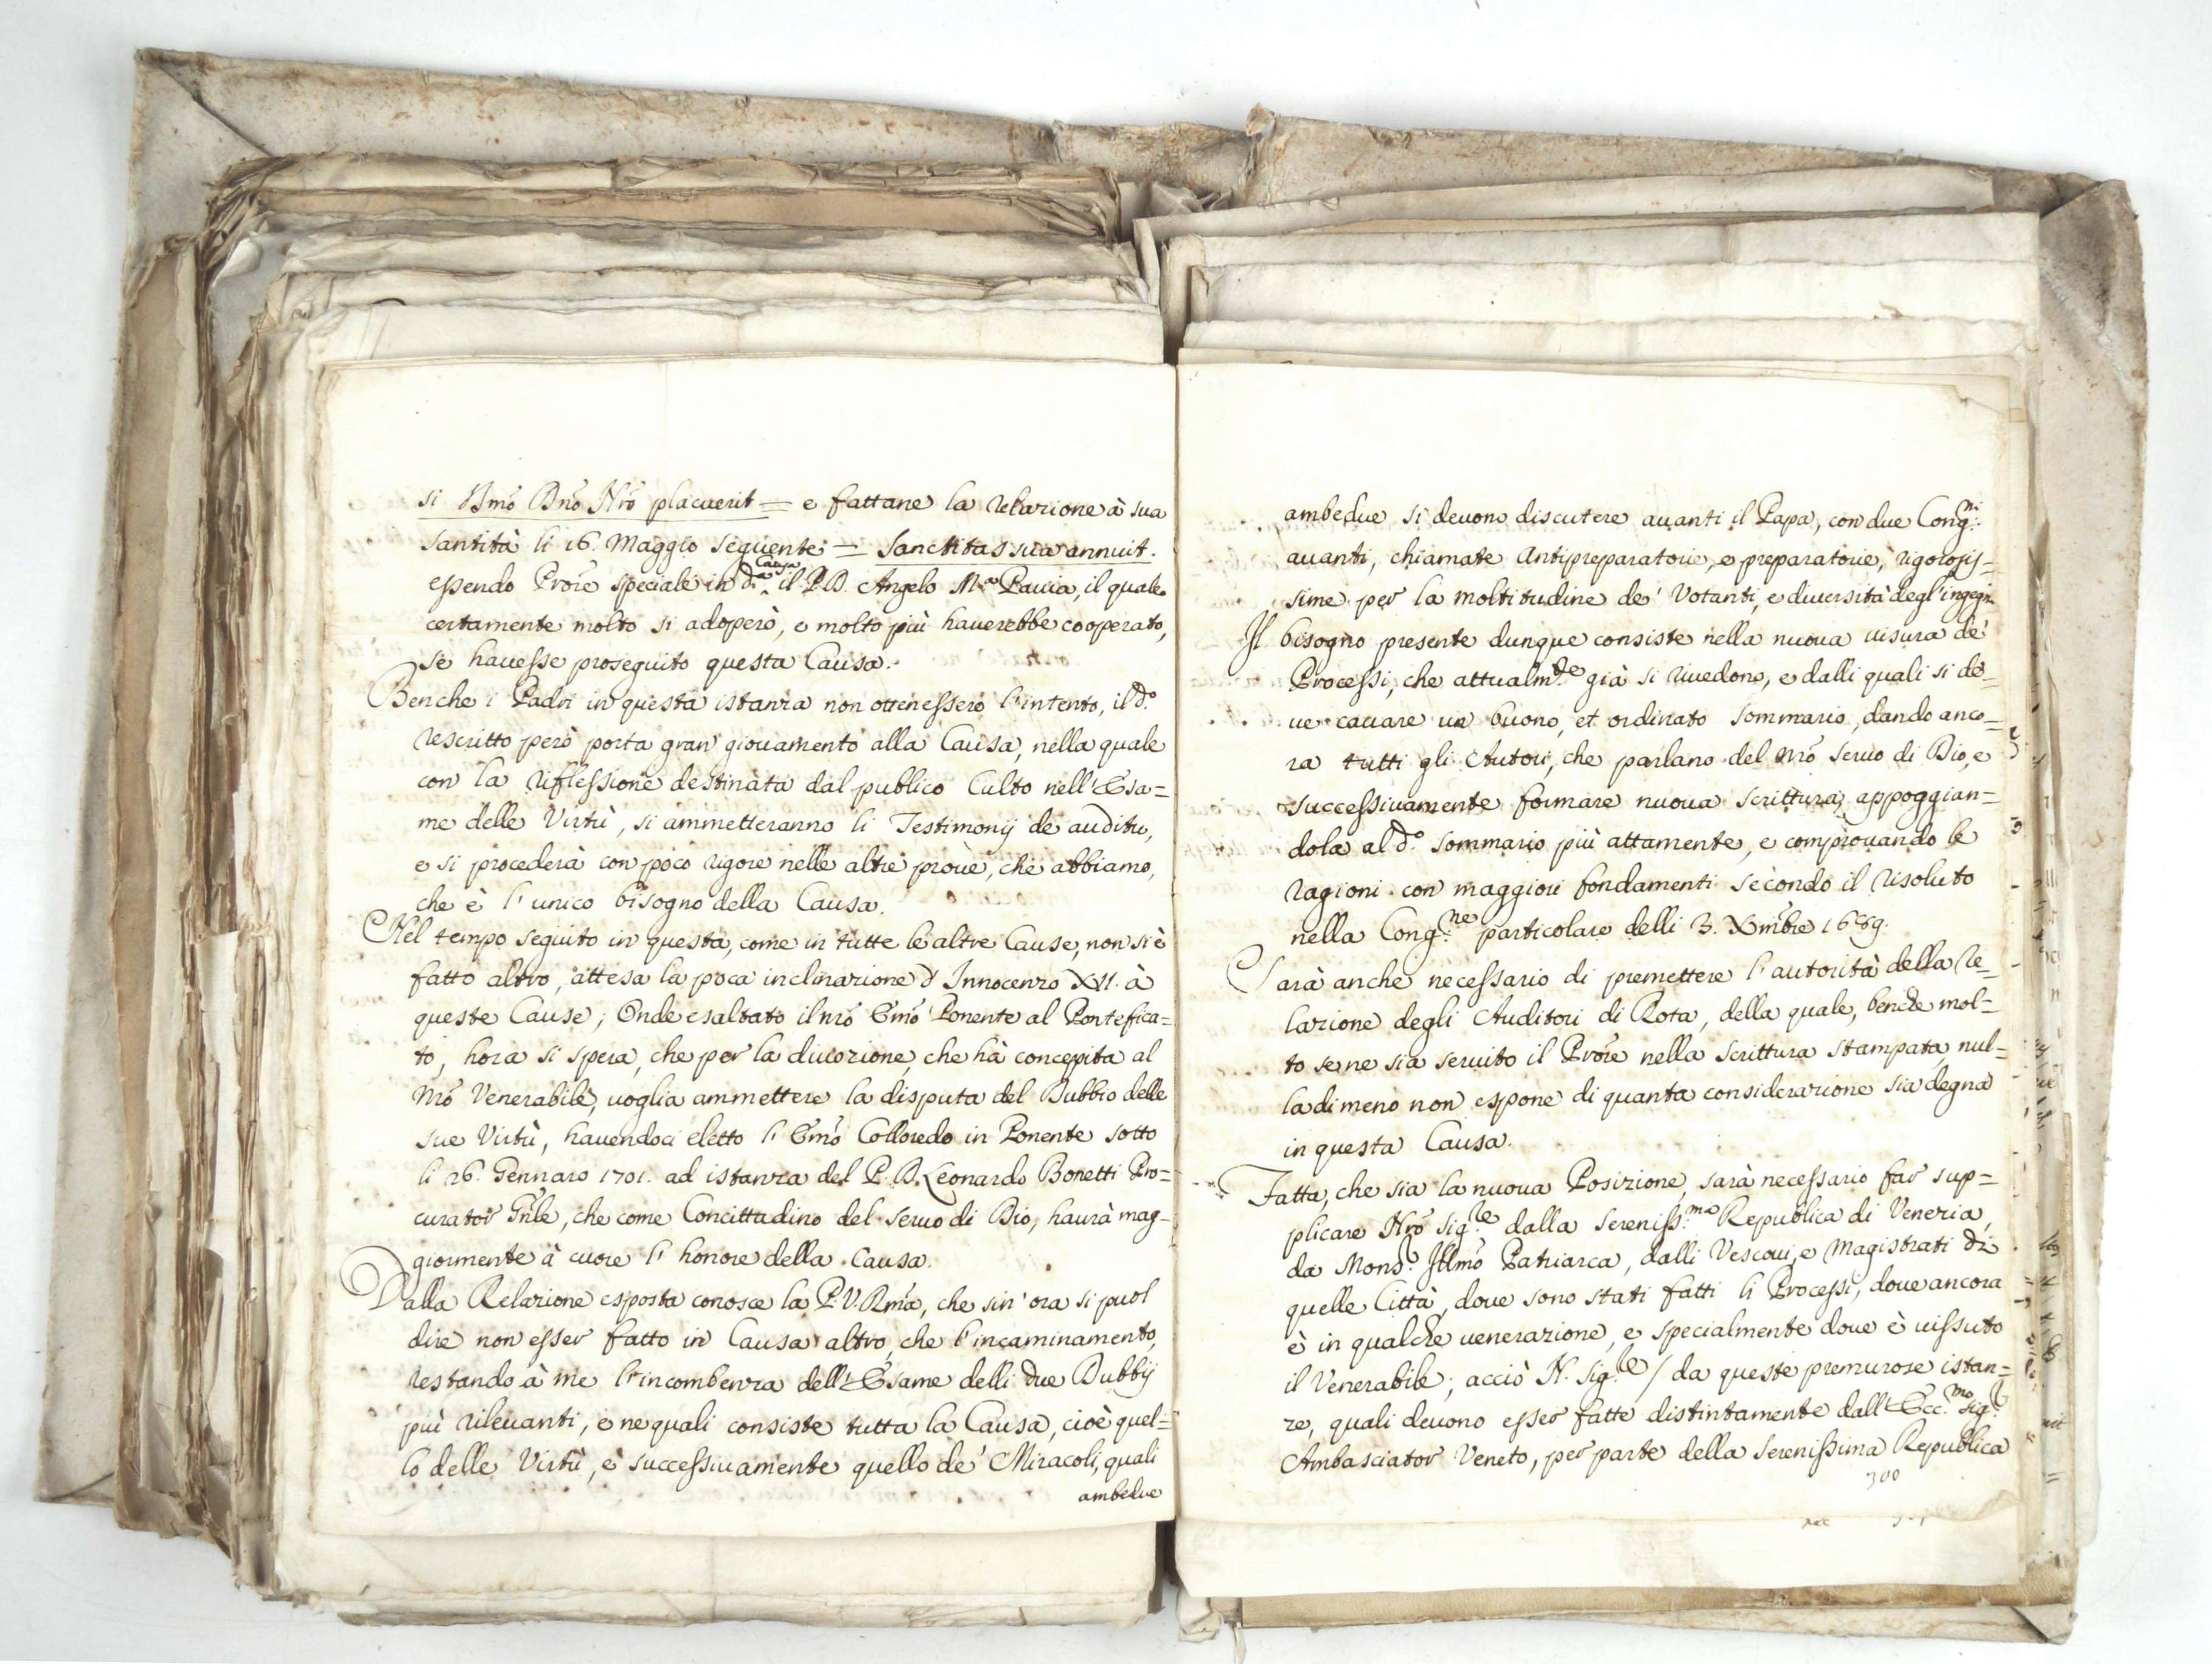 si SSmo Dno Nro placuerit = e fattane la relazione à sua
Santità li 16. Maggio seguente = Sanctitas sua annuit.
essendo Prore speciale in d.a Causa il P.D. Angelo M.a Pauia, il quale
certamente molto si adoperò, e molto più hauerebbe cooperato,
se hauesse proseguito questa Causa.
Benche i Padri in questa istanza non ottenessero l'intento, il d.o
rescritto però porta gran giouamento alla Causa, nella quale
con la riflessione destinata dal publico Culto nell'Esa=
me delle Virtù, si ammetteranno li Testimonij de auditu,
e si procederà con poco rigore nelle altre proue, che abbiamo,
che è l'unico bisogno della Causa.
Nel tempo seguito in questa, come in tutte le altre Cause, non si è
fatto altro, attesa la poca inclinazione d'Innocenzo XII. à
queste Cause; Onde esaltato il nro Emo Ponente al Pontefica=
to, hora si spera, che per la diuozione, che hà concepita al
nro Venerabile, uoglia ammettere la disputa del Dubbio delle
sue Virtù, hauendoci eletto l'Emo Colloredo in Ponente sotto
li 26. Gennaro 1701. ad istanza del P. D. Leonardo Bonetti Pro=
curator Gnle, che come Concittadino del seruo di Dio, haurà mag=
giormente à cuore l'honore della Causa.
Dalla Relazione esposta conosce la P.V.Rma, che sin'ora si puol
dire non esser fatto in Causa altro, che l'incaminamento,
restando à me l'incombenza dell'Esame delli due Dubbij
più rileuanti, e ne quali consiste tutta la Causa, cioè quel=
lo delle Virtù, e successiuamente quello de' Miracoli, quali
ambedue
ambedue si deuono discutere auanti il Papa, con due Cong.ni
auanti, chiamate Antipreparatorie, e preparatorie, rigorosis=
sime per la moltitudine de' Votanti, e diuersità degl'ingegni.
Il bisogno presente dunque consiste nella nuoua uisura de'
Processi, che attualm.te già si riuedono, e dalli quali si de=
ue cauare un buono, et ordinato sommario, dando anco=
ra tutti gli Autori, che parlano del nro Seruo di Dio, e
successiuamente formare nuoua scrittura, appoggian=
dola al d.o sommario più attamente, e comprouando le
ragioni con maggiori fondamenti secondo il risoluto
nella Cong.ne particolare delli 3. Xmbre 1689.
Sarà anche necessario di premettere l'autorità della Re=
lazione degli Auditori di Rota, della quale, benche mol=
to se ne sia seruito il Prore nella scrittura stampata nul=
ladimeno non espone di quanta considerazione sia degna
in questa Causa.
Fatta, che sia la nuoua Posizione, sarà necessario far sup=
plicare Nro Sig.re dalla Sereniss.ma Republica di Venezia,
da Mons.r Illmo Patriarca, dalli Vescoui, e Magistrati di
quelle Città, doue sono stati fatti li Processi, doue ancora
è in qualche uenerazione, e specialmente doue è uissuto
il Venerabile; acciò N. Sig.re / da queste premurose istan=
ze, quali deuono esser fatte distintamente dall'Ecc.mo Sig.r
Ambasciator Veneto, per parte della Serenissima Republica
300